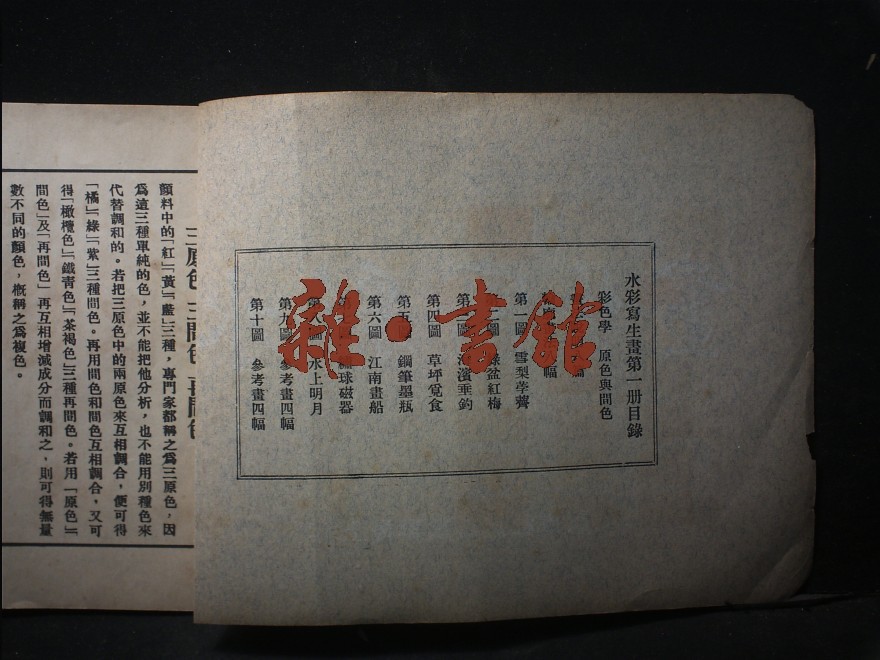 水彩寫生畫第一册目錄
彩色學 原色與間色
幅
第一圖 雪梨荸薺
圖 綠盆紅梅
第三圖 海濱垂釣
第四圖 草坪覓食
第五圖 鋼筆墨瓶
第六圖 江南畫船
球磁器
第八圖 水上明月
第九圖 參考畫四幅
第十圖 參考畫四幅
雜·書館
三原色 三間色 再間色
顏料中的「紅」「黃」「藍」三種，專門家都稱之爲三原色，因
爲這三種單純的色，並不能把他分析，也不能用別種色來
代替調和的。若把三原色中的兩原色來互相調合，便可得
「橘」「綠」「紫」三種間色。再用間色和間色互相調合，又可
得「橄欖色」「鐵青色」「茶褐色」三種再間色。若用「原色」「
間色」及「再間色」再互相增減成分而調和之，則可得無量
數不同的顏色，概稱之爲複色。